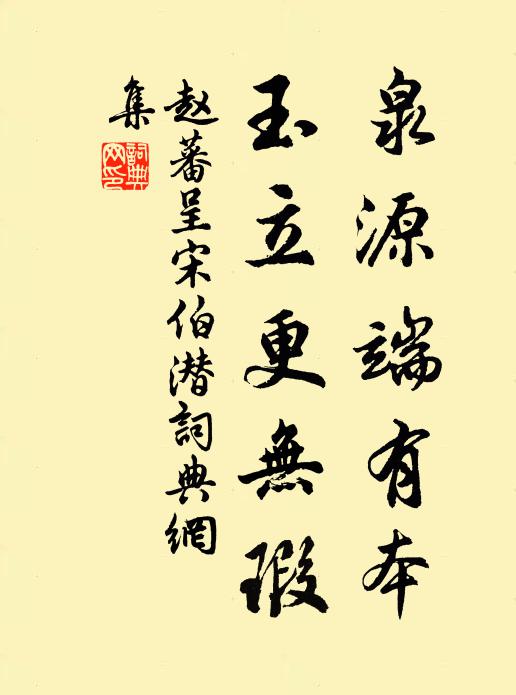 泉源端有本
玉立更無瑕
赵蕃呈宋伯潜詞典網
集
詞典網印